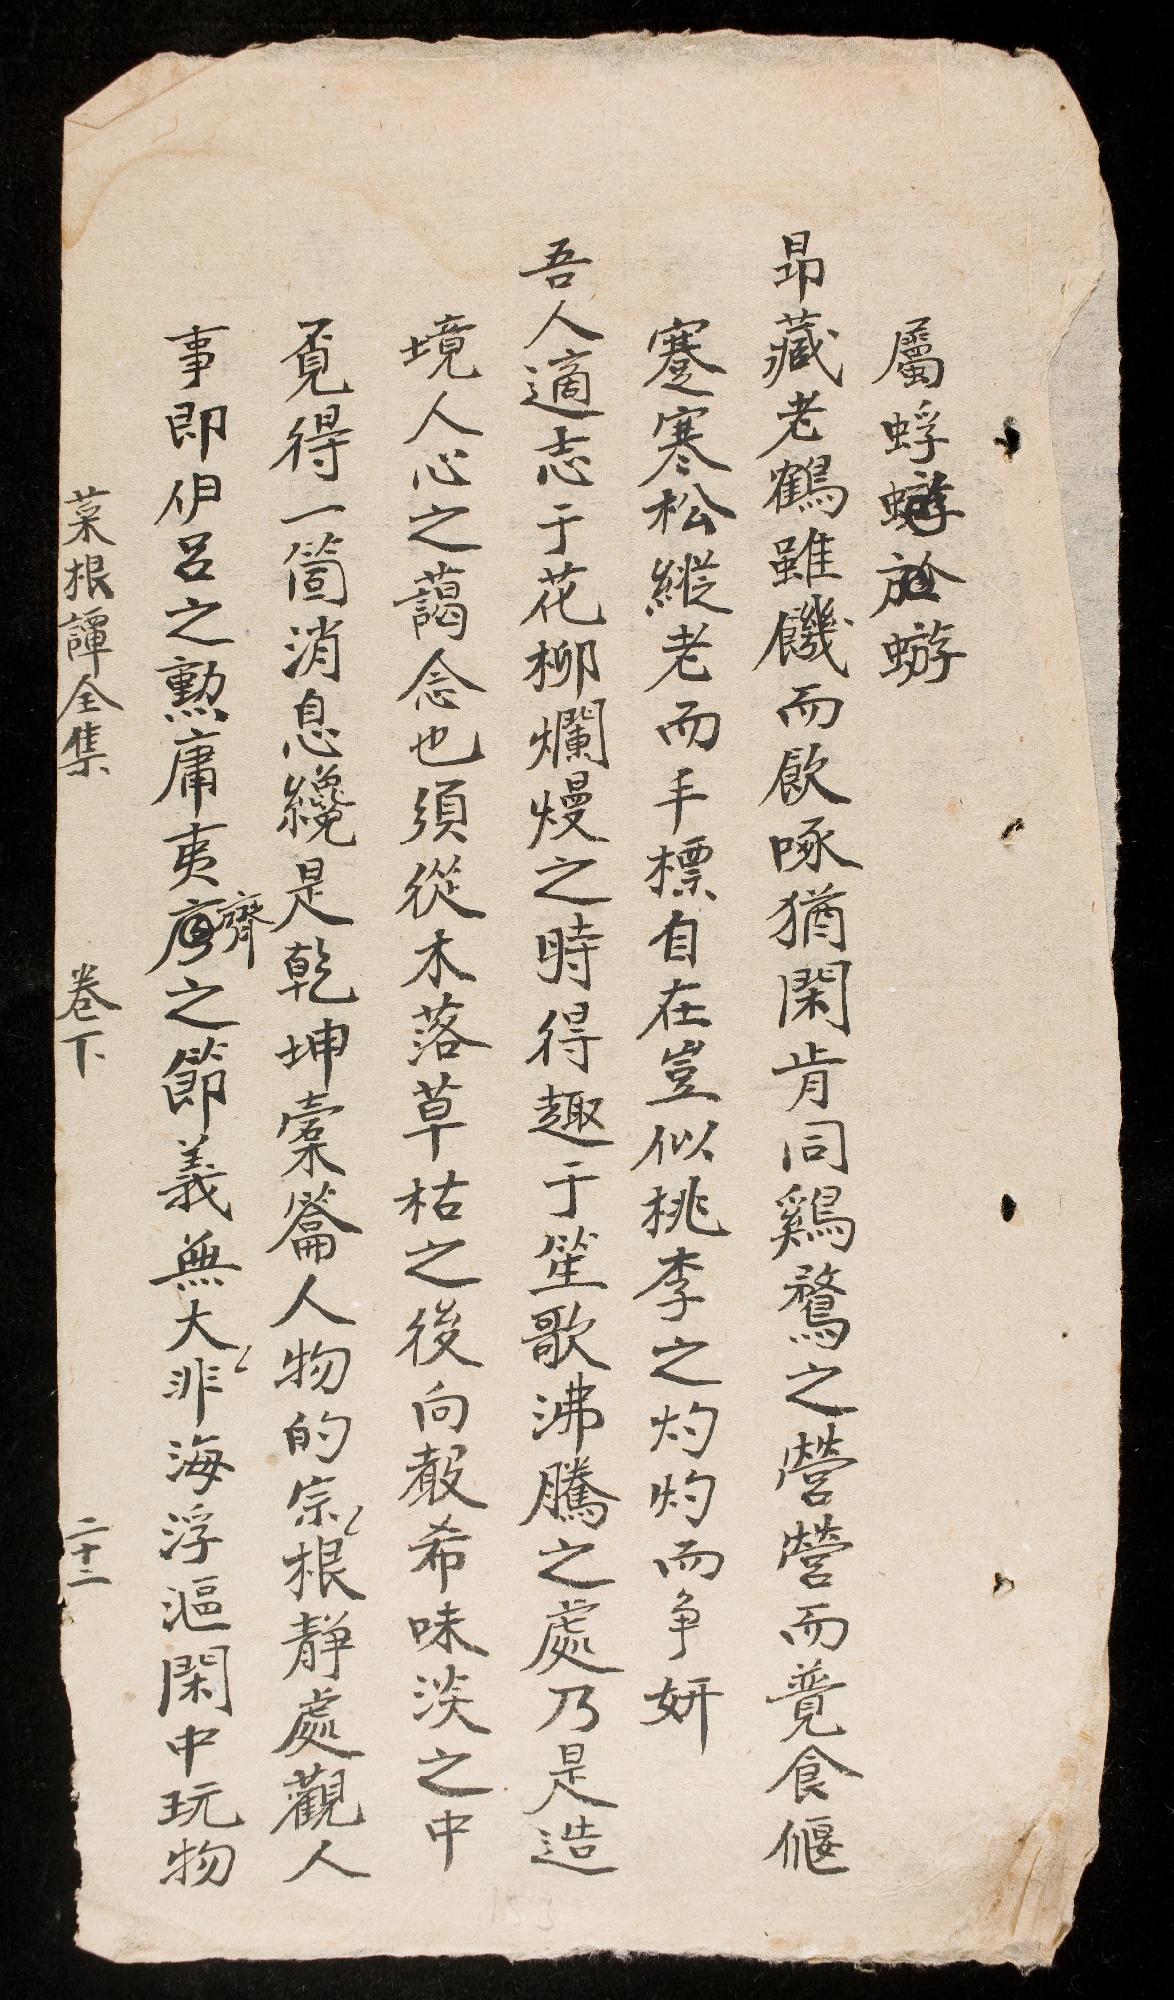 屬蜉蝣於蝣
昻藏老鶴雖饑而飮啄猶閑肯同鷄鶩之營營而竟食偃
蹇寒松縱老而丰標自在豈似桃李之灼灼而争妍
吾人適志于花柳爛熳之時得趣于笙歌沸騰之處乃是造
境人心之蕩念也須從木落草枯之後向聲希味淡之中
覓得一箇消息纔是乾坤橐籥人物的宗根靜處觀人
事即伊呂之勲庸夷齊之節義無大非海浮漚閑中玩物
菜根譚全集 卷下 二十二